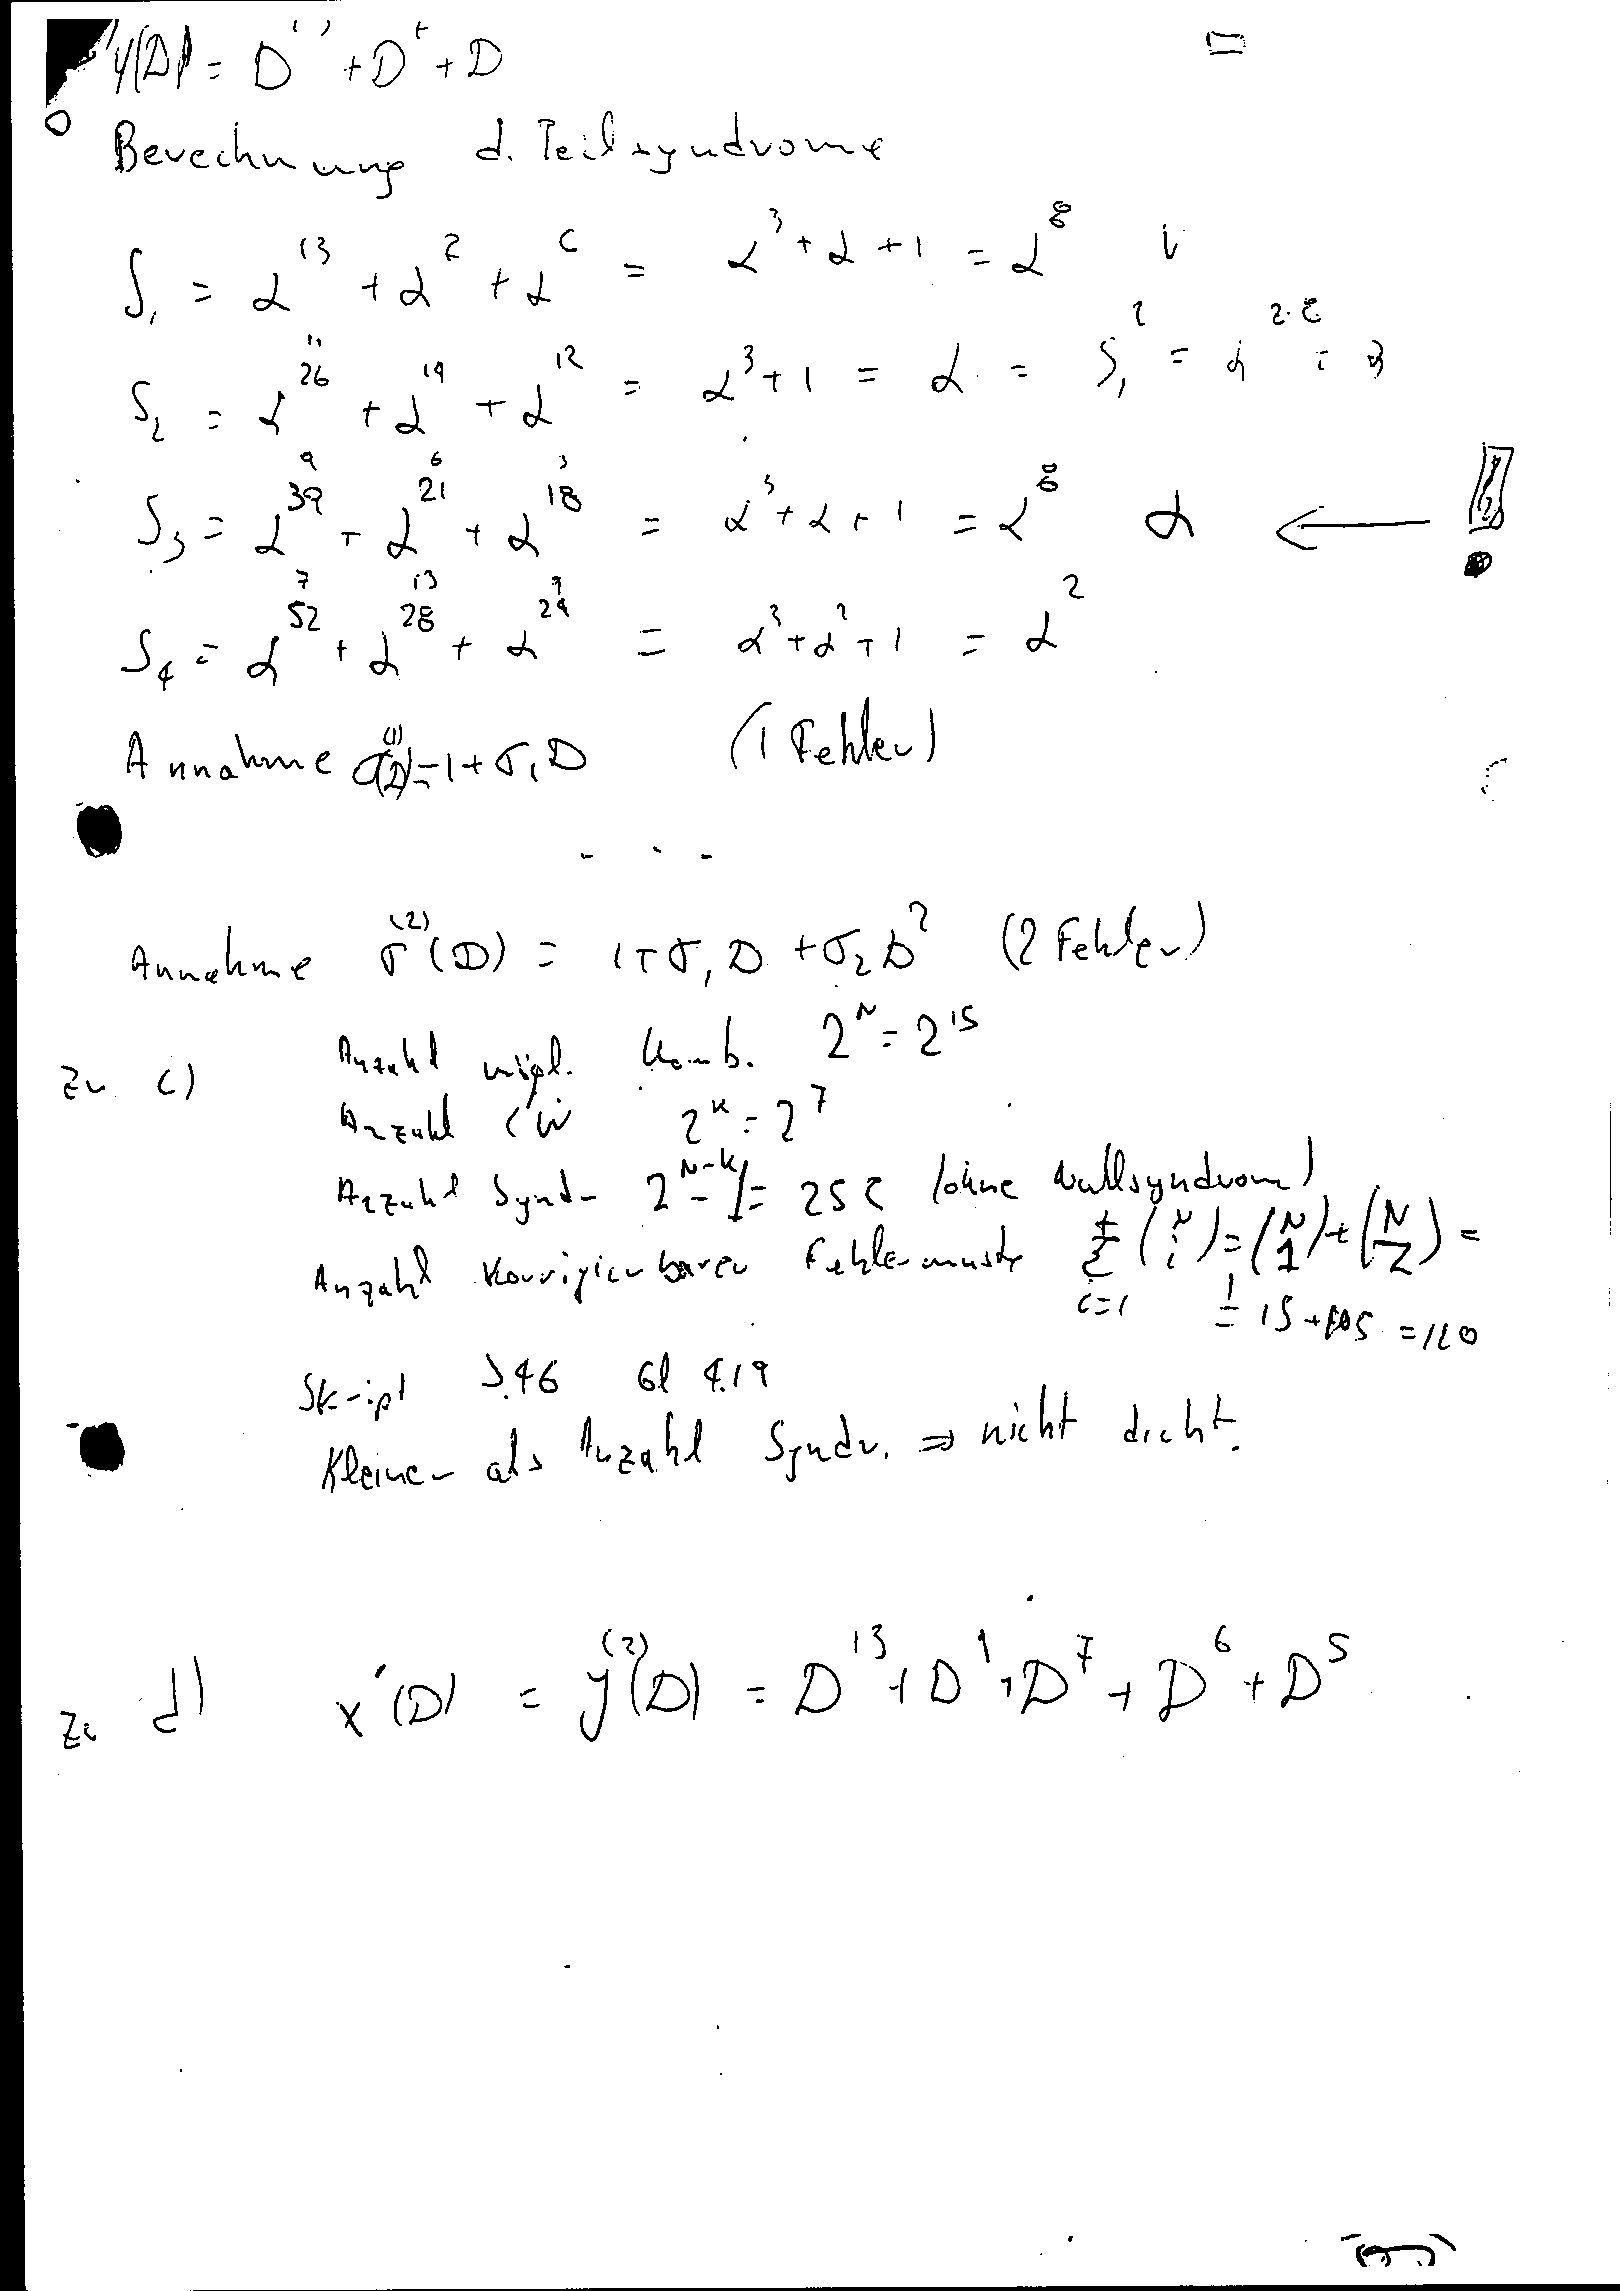 y(D) = D + D + D
Berechnung d. Teilsyndrome
S₁ = α¹³ + α² + α⁶ = α³ + α + 1 = α⁸
S₂ = α²⁶ + α¹⁹ + α¹² = α³ + 1 = α = S₁² =
S₃ = α³⁹ + α²¹ + α¹⁸ = α³ + α + 1 = α⁸ α ← !
S₄ = α⁵² + α²⁸ + α²⁴ = α³ + α² + 1 = α²
Annahme σ⁽¹⁾(D) = 1 + σ₁D (1 Fehler)
. . .
Annahme σ⁽²⁾(D) = 1 + σ₁D + σ₂D² (2 Fehler)
zu c) Anzahl mögl. Komb. 2ᴺ = 2¹⁵
Anzahl CW 2ᴷ = 2⁷
Anzahl Synd. 2ᴺ⁻ᴷ - 1 = 255 (ohne Nullsyndrom)
Anzahl korrigierbarer Fehlermuster Σ (N i) = (N 1) + (N 2) =
i=1 = 15 + 105 = 120
Skript S.46 Gl 4.19
Kleiner als Anzahl Syndr. ⇒ nicht dicht.
zu d) x'(D) = y⁽²⁾(D) = D¹³ + D⁹ + D⁷ + D⁶ + D⁵